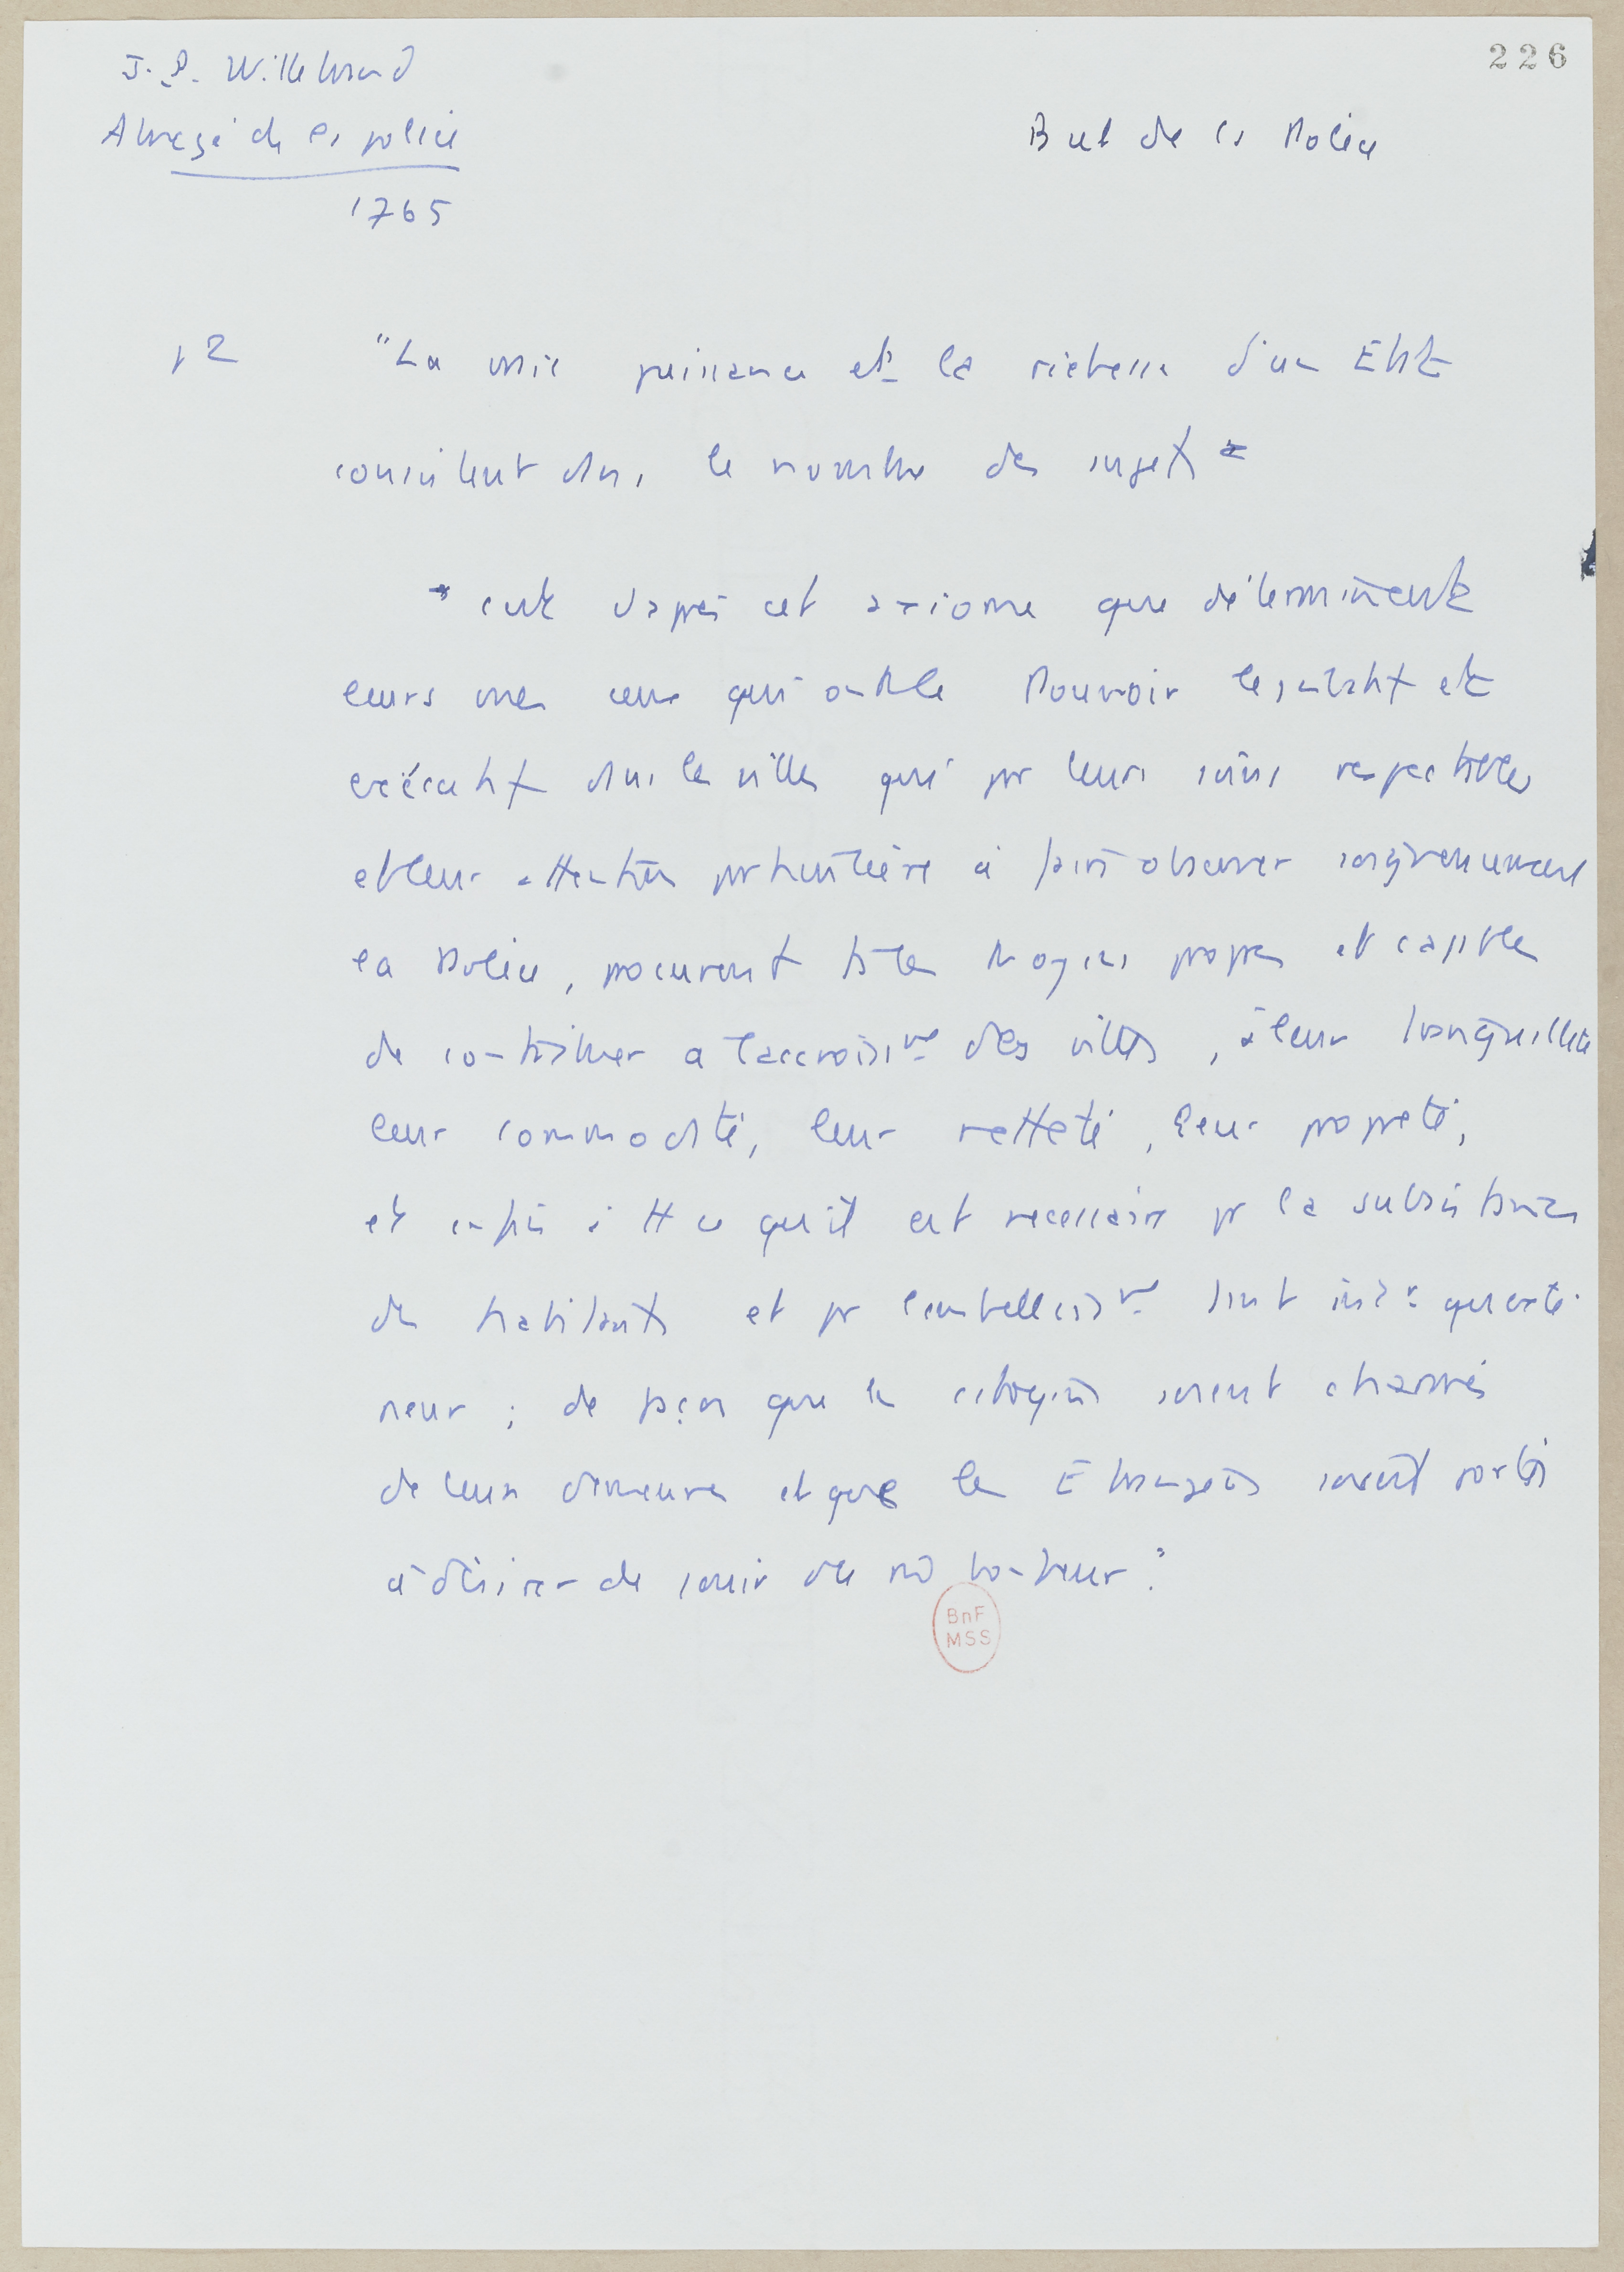 J. P. Willebrand
226
Abrégé de la police
But de la Police
1765
p 2 "La vraie puissance et la richesse d'un Etat
consistent dans le nombre des sujets *
* c'est d'après cet axiome que déterminent
leurs vues ceux qui ont le Pouvoir législatif et
exécutif dans les villes qui pr leurs soins respectables
et leur attention particulière à faire observer soigneusement
la Police, procurent ts les Moyens propres et capables
de contribuer a l'accroissmt des villes, à leur tranquillité
leur commodité, leur netteté, leur propreté,
et enfin à tt ce qu'il est necessaire pr la subsistance
des habitants et pr l'embellissmt tant intr qu'exté-
rieur ; de façon que les citoyens soient charmés
de leurs demeures et que les Etrangers soient portés
à désirer de jouir de ce bonheur."
BnF
MSS